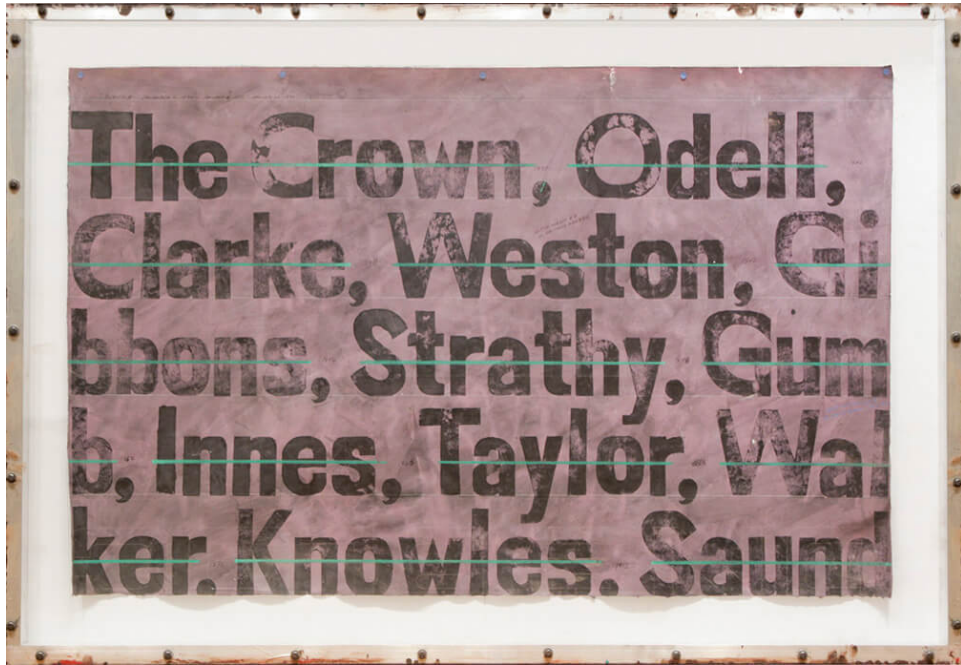 The Crown, Odell,
Clarke, Weston, Gi
bbons, Strathy, Gum
b, Innes, Taylor, Wal
ker. Knowles. Saund